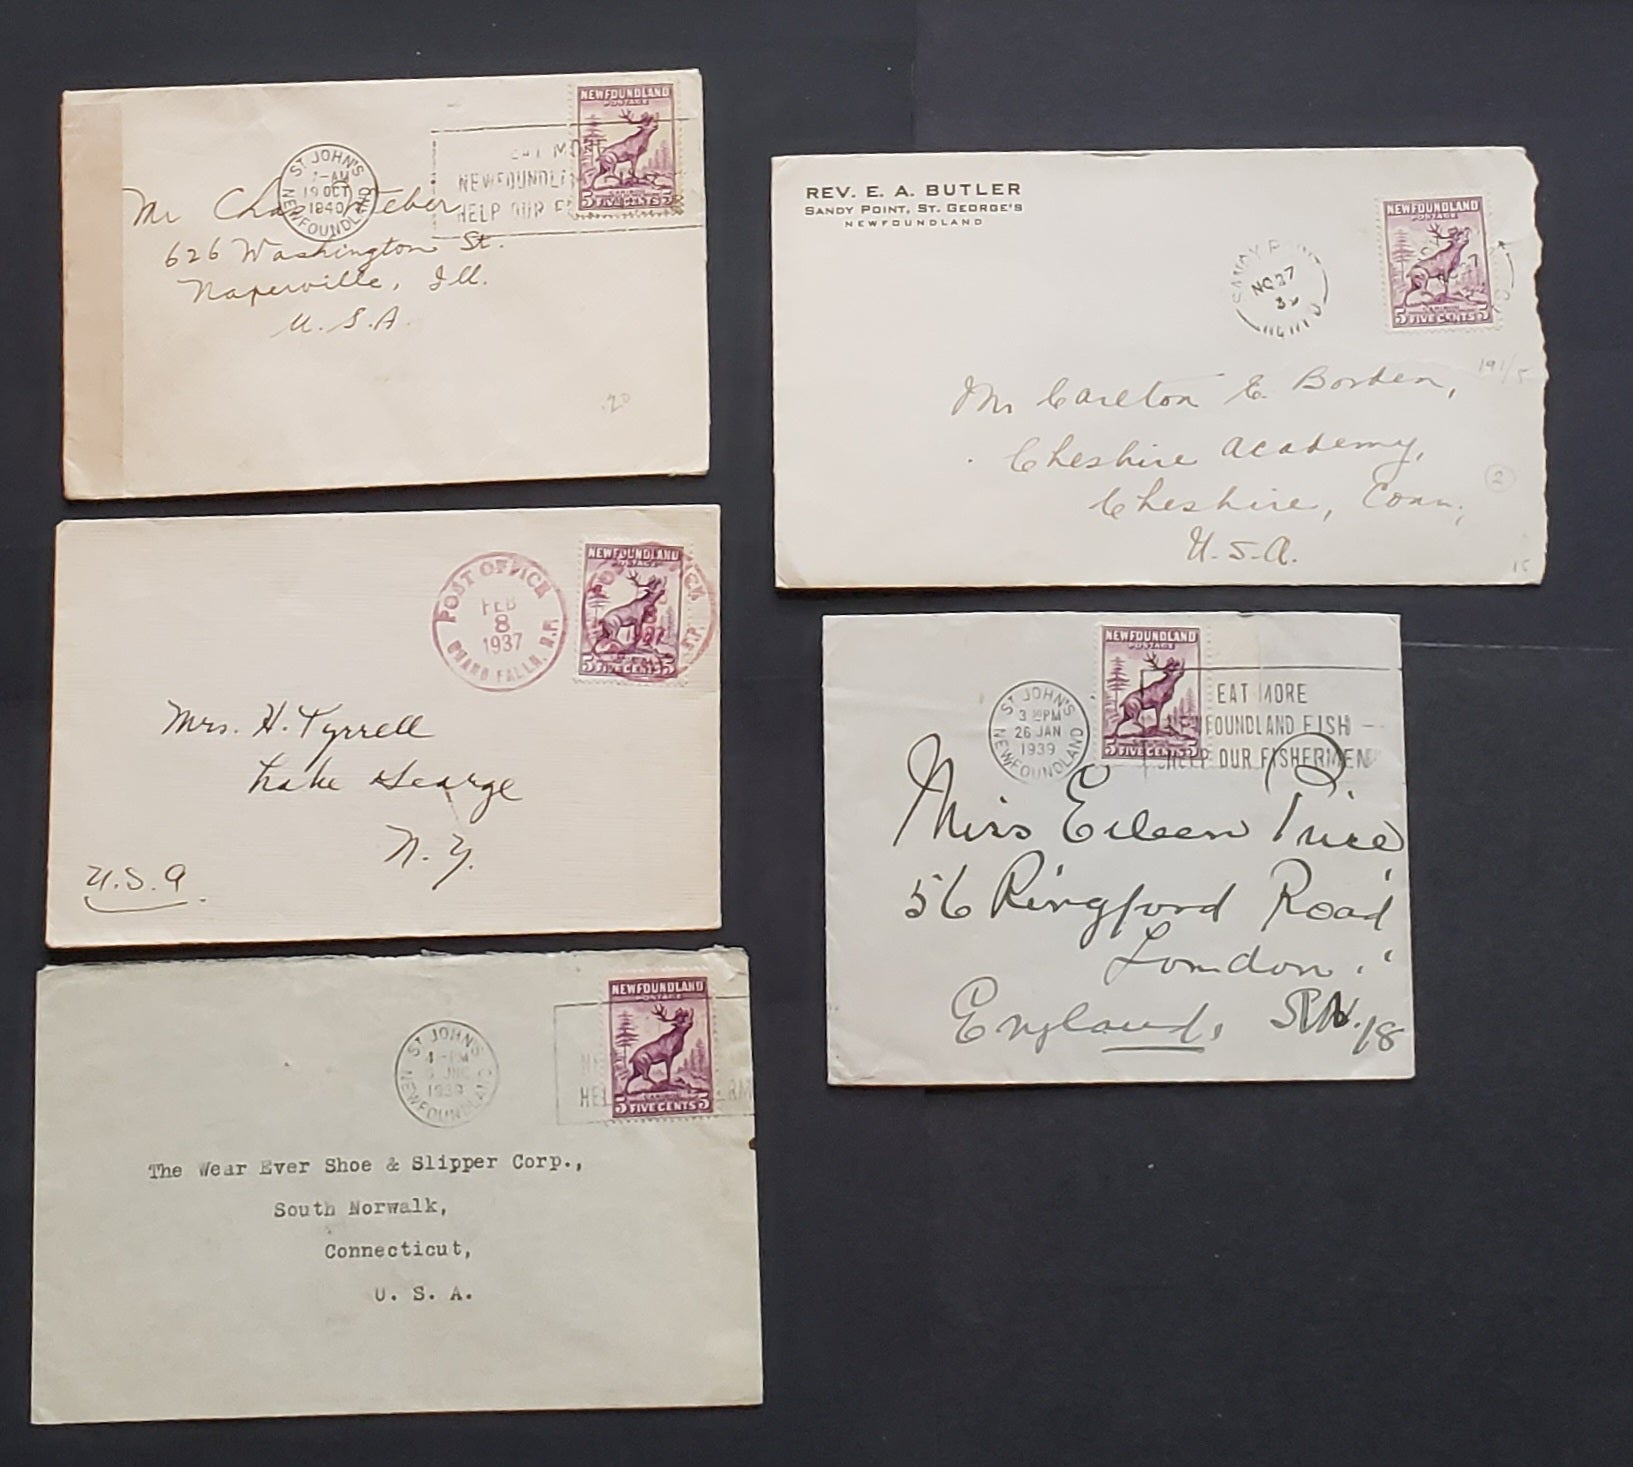 ST JOHN'S
NEWFOUNDLAND
19 OCT
1940
MORE
NEWFOUNDL
HELP OUR F
NEWFOUNDLAND
POSTAGE
CARIBOU
5 FIVE CENTS 5
Mr Chas
626 Washington St.
Naperville, Ill.
U.S.A.
.20
REV. E. A. BUTLER
SANDY POINT, ST. GEORGE'S
NEWFOUNDLAND
SANDY P
27
NEWFOUNDLAND
POSTAGE
5 FIVE CENTS 5
Mr Carlton E. Borden,
Cheshire Academy,
Cheshire, Conn,
U.S.A.
191/5
2
15
POST OFFICE
FEB
8
1937
GRAND FALLS, N.F.
NEWFOUNDLAND
POSTAGE
5 FIVE CENTS 5
Mrs. H. Tyrrell
Lake George
N.Y.
U.S.A.
ST JOHN'S
3 PM
26 JAN
1939
NEWFOUNDLAND
NEWFOUNDLAND
POSTAGE
5 FIVE CENTS 5
EAT MORE
NEWFOUNDLAND FISH
HELP OUR FISHERMEN
Miss Eileen Price
56 Ringford Road
London
England, S.W.18
ST JOHN'S
4-PM
1939
NEWFOUNDLAND
NEWFOUNDLAND
POSTAGE
CARIBOU
5 FIVE CENTS 5
NE
HEL
ERM
The Wear Ever Shoe & Slipper Corp.,
South Norwalk,
Connecticut,
U. S. A.